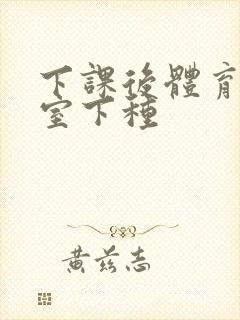 下課後體育
室下種
黃茲志